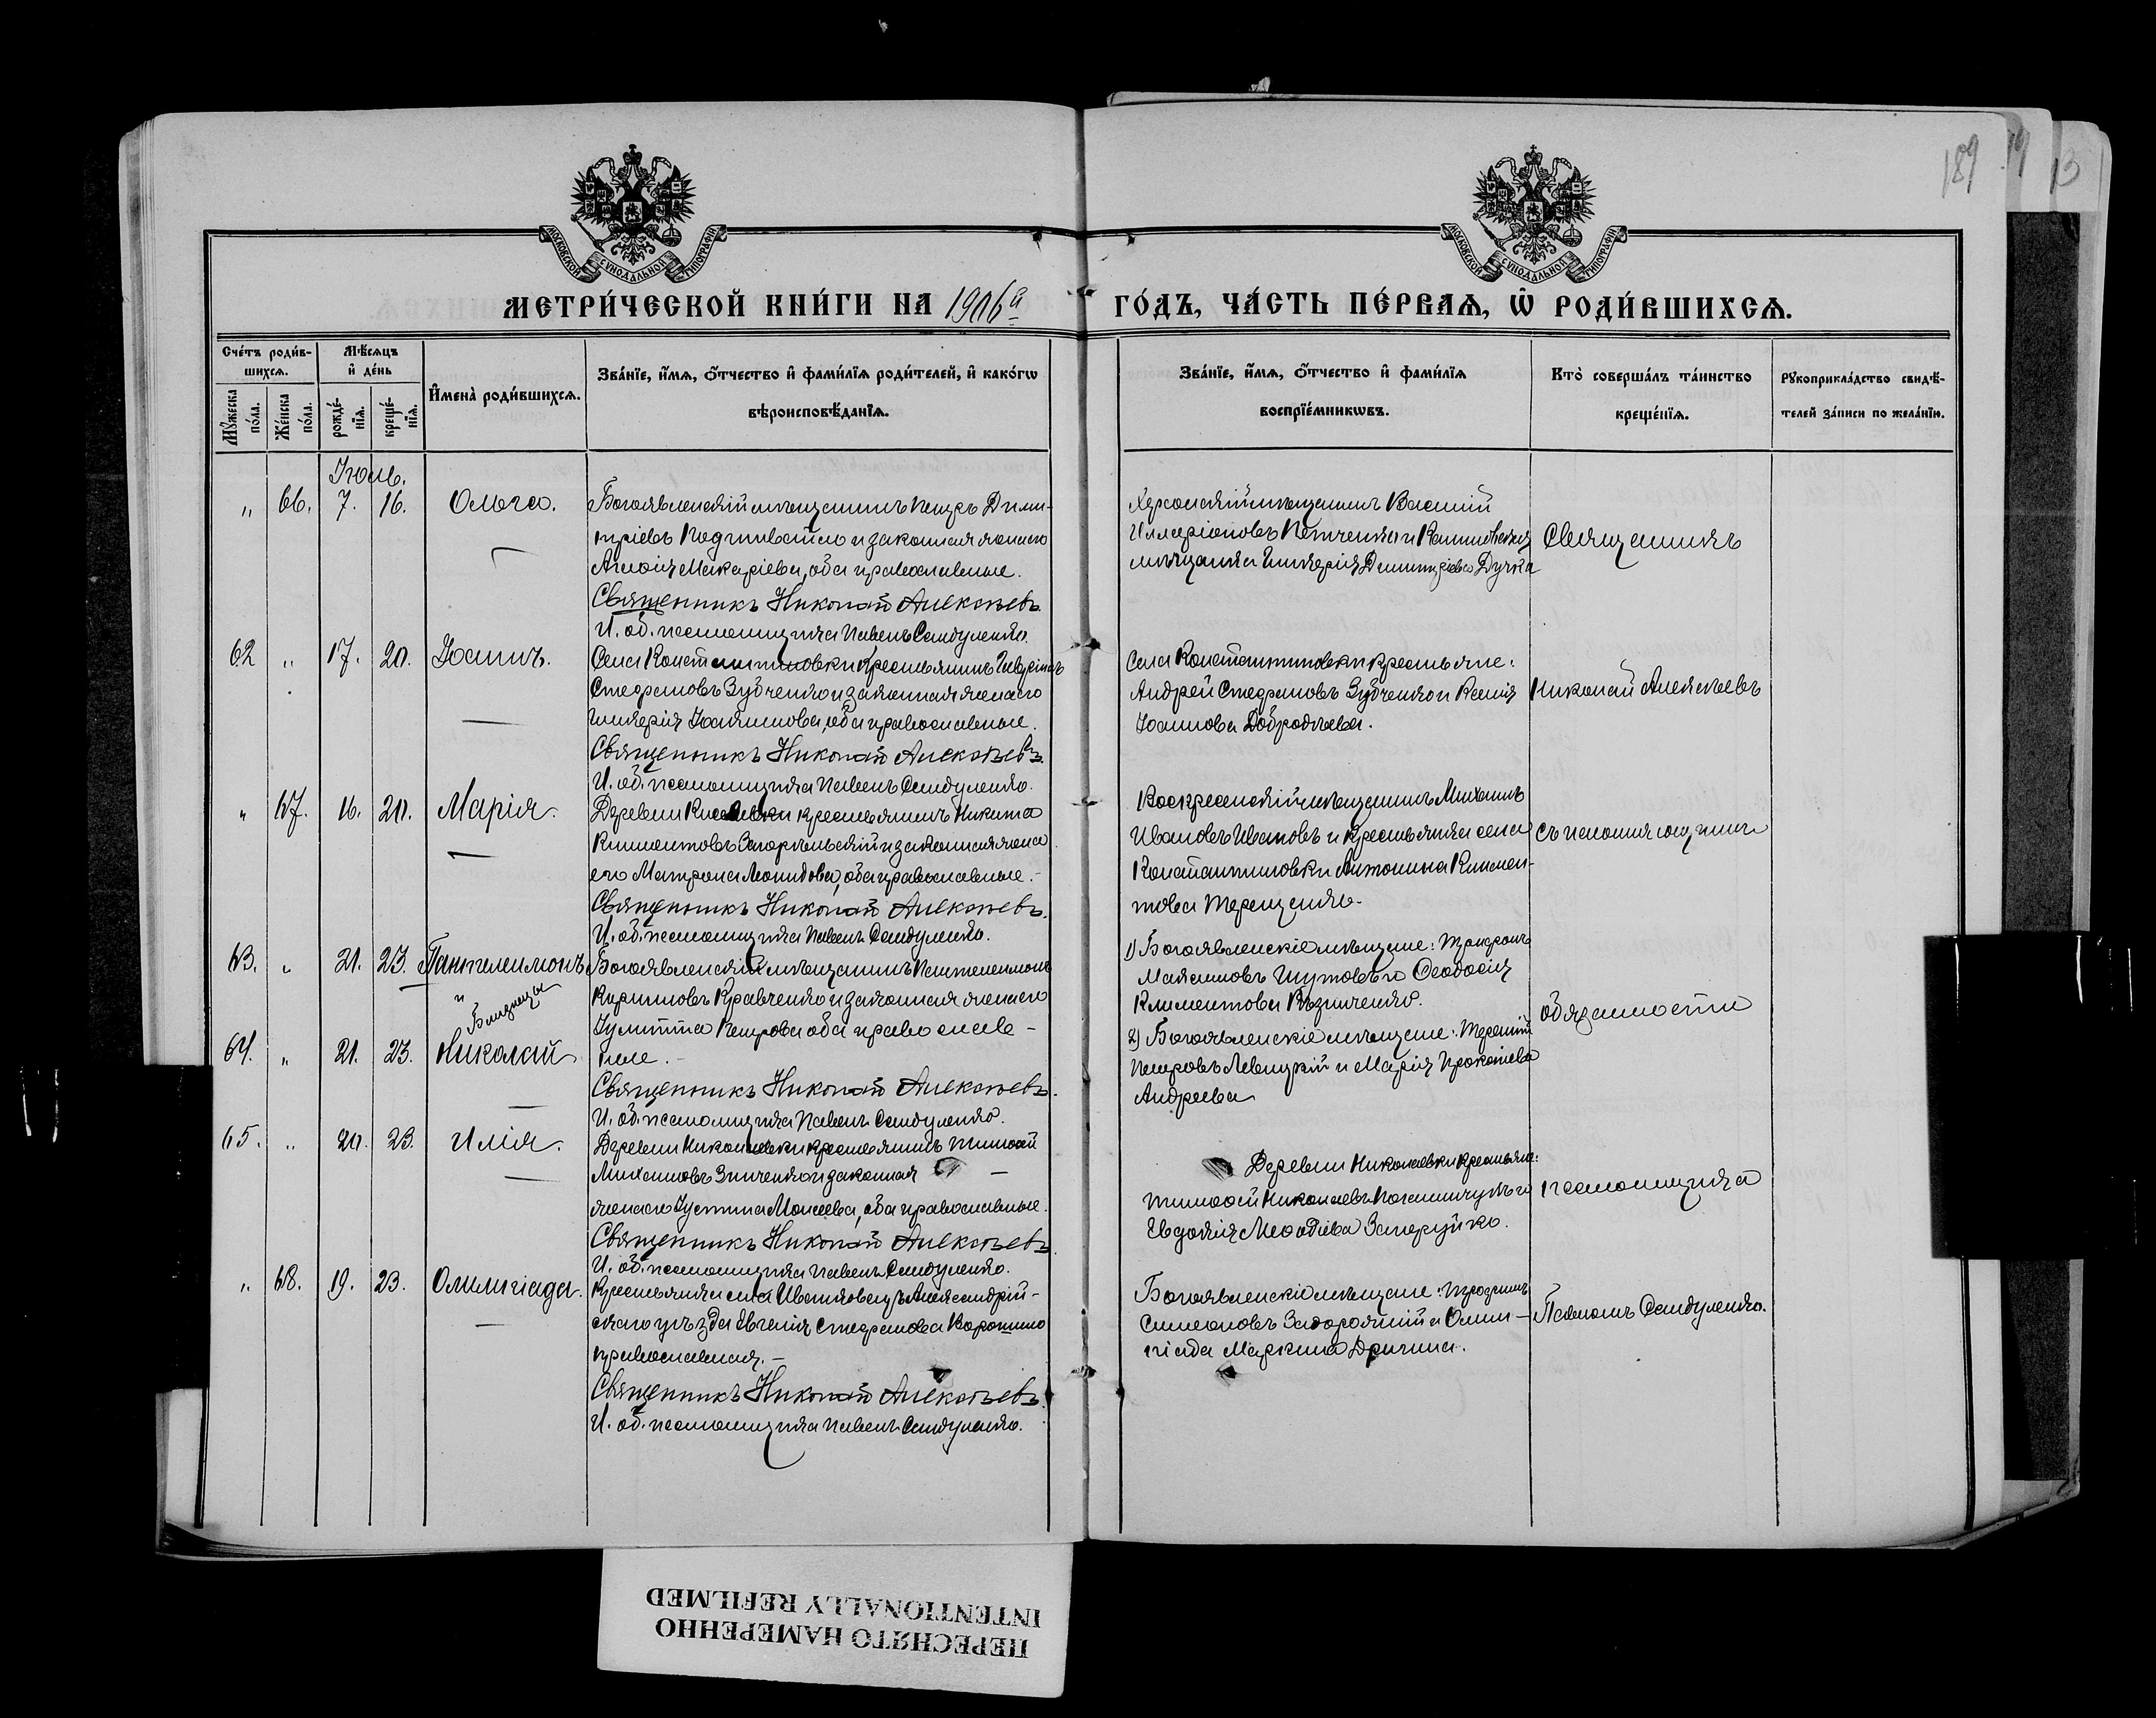 187
МОСКОВСКОЙ СУНОДАЛЬНОЙ ТИПОГРАФІИ
МОСКОВСКОЙ СУНОДАЛЬНОЙ ТИПОГРАФІИ
МЕТРИ́ЧЕСКОЙ КНИ́ГИ НА 1906й
ГО́ДЪ, ЧА́СТЬ ПЕ́РВАѦ, Ѿ РОДИ́ВШИХСѦ.
Сче́тъ роди́в-
шихсѧ.
Мꙋжеска по́ла.
Же́нска по́ла.
Мѣ́сѧцъ и҆ де́нь
рожде́-нїѧ.
креще́-нїѧ.
И҆мена̀ роди́вшихсѧ.
Зва́нїе, и҆́мѧ, ѻ҆́тчество и҆ фами́лїѧ роди́телей, и҆ како́гѡ
вѣроисповѣ́данїѧ.
Зва́нїе, и҆́мѧ, ѻ҆́тчество и҆ фами́лїѧ
воспрїе́мникѡвъ.
Кто̀ соверша́лъ та́инство
креще́нїѧ.
Рꙋкоприкла́дство свидѣ́-
телей за́писи по жела́нїю.
Іюль.
" 66. 7. 16. Ольга.
Богоявленскій мѣщанинъ Петръ Дими-
тріевъ Подгивайло и законная жена его
Агафія Макаріева, оба православные.
Священникъ Николай Алексѣевъ
И. об. псаломщика Павелъ Сандуленко.
Херсонскій мѣщанинъ Василій
Илларіоновъ Петченко и
мѣщанка Гликерія Димитріева Дучка
Священникъ
62 " 17. 20. Іоаннъ.
Села Константиновки крестьянинъ Гавріилъ
Стефановъ Зубченко и законная жена его
Гликерія Іоакимова, оба православные.
Священникъ Николай Алексѣевъ
И. об. псаломщика Павелъ Сандуленко.
Села Константиновки крестьяне:
Андрей Стефановъ Зубченко и Ксенія
Іоаннова Добродѣева.
Николай Алексѣевъ
" 67. 16. 20. Марія.
Деревни крестьянинъ Никита
Климентовъ Загорельскій и законная жена
его Матрона Леонидова, оба православные.-
Священникъ Николай Алексѣевъ.
И. об. псаломщика Павелъ Сандуленко.
Воскресенскій мѣщанинъ Михаилъ
Ивановъ Ивановъ и крестьянка села
Константиновки Антонина Климен-
това Терещенко.
съ исполняющимъ
63. " 21. 23. Пантелеимонъ
и
Близнецы
64. " 21. 23. Николай
Богоявленскій мѣщанинъ Пантелеимонъ
Кириловъ Кравченко и законная жена его
Іулитта Петрова оба православ-
ные.-
Священникъ Николай Алексѣевъ.
И. об. псаломщика Павелъ Сандуленко.
1) Богоявленскіе мѣщане: Трифонъ
Максимовъ Шутовъ и Ѳеодосія
Климентова Возниченко.
2) Богоявленскіе мѣщане: Терентій
Петровъ Левицкій и Марія Прокопіева
Андреева
обязанности
65. " 20. 23. Илія.
Деревни Николаевки крестьянинъ Тимоѳей
Михаиловъ Зинченко и законная —
жена его Іустина Моисеева, оба православные.
Священникъ Николай Алексѣевъ.
И. об. псаломщика Павелъ Сандуленко.
Деревни Николаевки крестьяне:
Тимоѳей Николаевъ и
Евдокія Меѳодіева Загоруйко.
псаломщика
" 68. 19. 23. Олимпіада.
Крестьянка села Ивановецъ Александрій-
скаго уѣзда Евгенія Стефанова
православная.-
Священникъ Николай Алексѣевъ.
И. об. псаломщика Павелъ Сандуленко.
Богоявленскіе мѣщане: Трофимъ
Симеоновъ Задорожній и Олим-
піада Маркина Дричина.
Павломъ Сандуленко.
ПЕРЕСНЯТО НАМЕРЕННО
INTENTIONALLY REFILMED